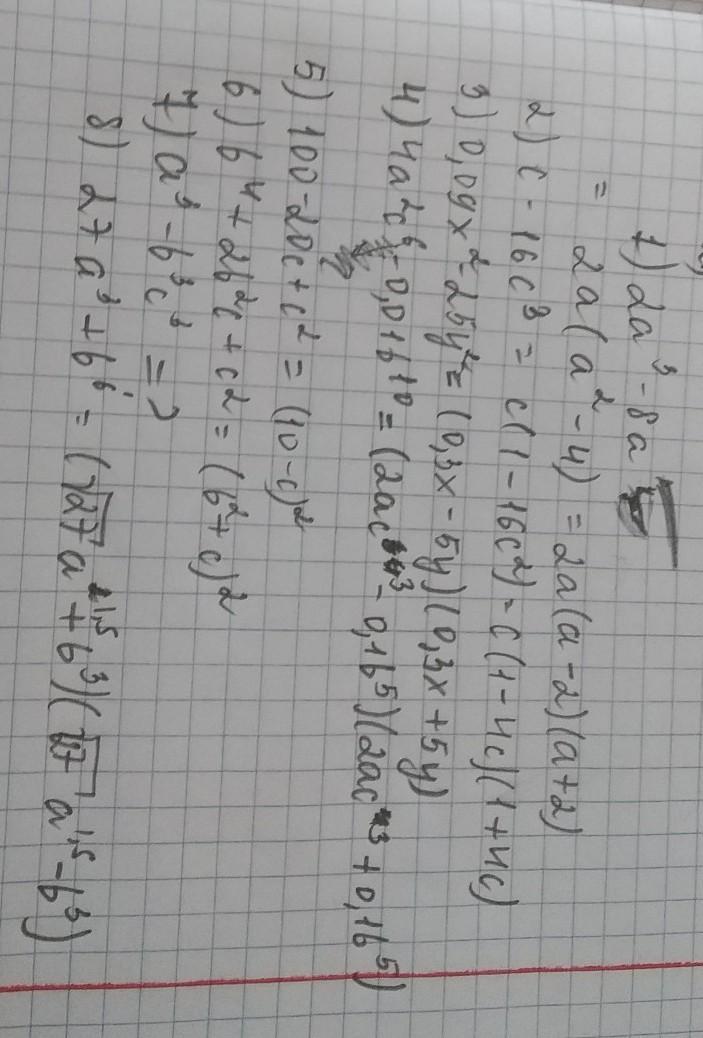 1) 2a³ - 8a
= 2a(a² - 4) = 2a(a - 2)(a + 2)
2) c - 16c³ = c(1 - 16c²) = c(1 - 4c)(1 + 4c)
3) 0,09x² - 25y² = (0,3x - 5y)(0,3x + 5y)
4) 4a²c⁶ - 0,01b¹⁰ = (2ac³ - 0,1b⁵)(2ac³ + 0,1b⁵)
5) 100 - 20c + c² = (10 - c)²
6) b⁴ + 2b²c + c² = (b² + c)²
7) a³ - b³c³ =>
8) 27a³ + b⁶ = (√27 a¹,⁵ + b³)(√27 a¹,⁵ - b³)